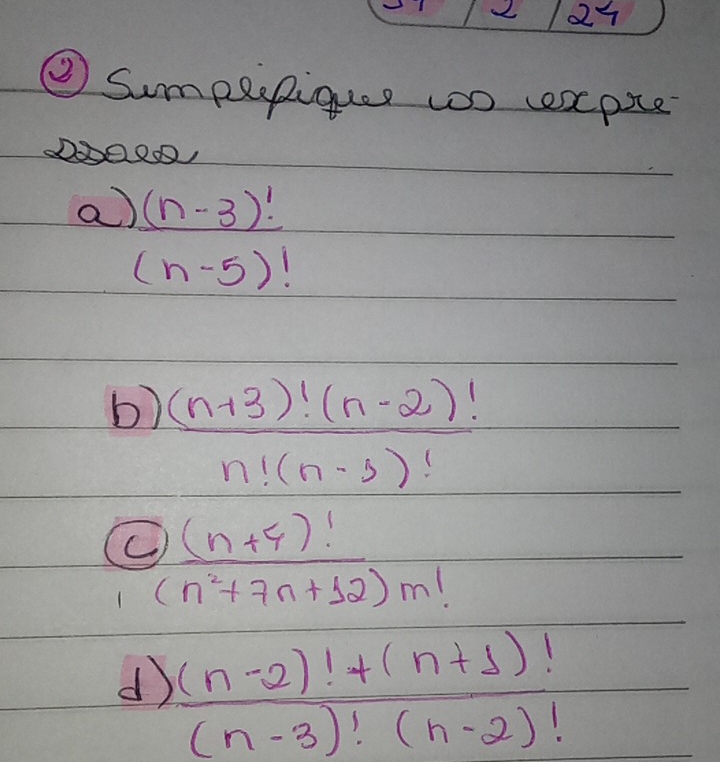 / 2 / 24
2 Simplifique as expre-
ssões
a) (n-3)!
(n-5)!
b) (n+3)! (n-2)!
n! (n-1)!
c) (n+4)!
(n²+7n+12) m!
d) (n-2)! + (n+1)!
(n-3)! (n-2)!